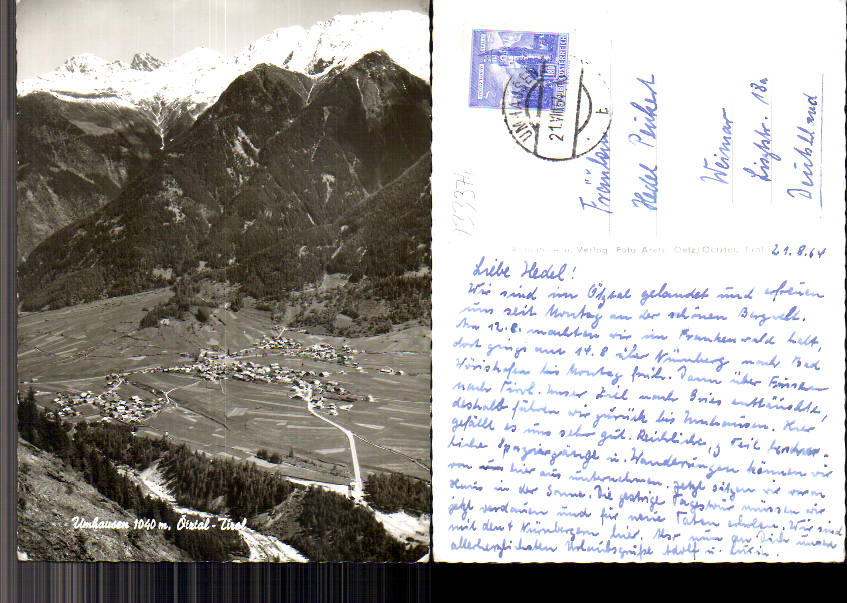 Umhausen 1040 m, Ötztal - Tirol
UMHAUSEN
21.VIII.64
Fräulein
Hedel Penkert
Weimar
Lisztstr. 18a
Deutschland
13974
Verlag Foto Oetz/Ötztal, Tirol
21.8.64
Liebe Hedel!
Wir sind im Ötztal gelandet und erfreuen
uns seit Montag an der schönen Bergwelt.
Am 12.8. machten wir im Frankenwald halt,
dort gings am 14.8 über Nürnberg nach Bad
Wörishofen bis Montag früh. Dann über Füssen
nach Tirol. Unser Ziel nach Gries enttäuschte,
deshalb fuhren wir zurück bis Umhausen. Hier
gefällt es uns sehr gut. Reichliche, z. Teil
liche Spaziergänge u. Wanderungen können wir
von hier aus unternehmen. Jetzt sitzen wir vorm
Haus in der Sonne. Die gestrige Tagestour müssen wir
jetzt verdauen und für neue Taten erholen. Wir sind
mit den 4 Nürnbergern hier. Nur nun an Dich unsere
allerherzlichsten Urlaubsgrüße Adolf u. Luzie.